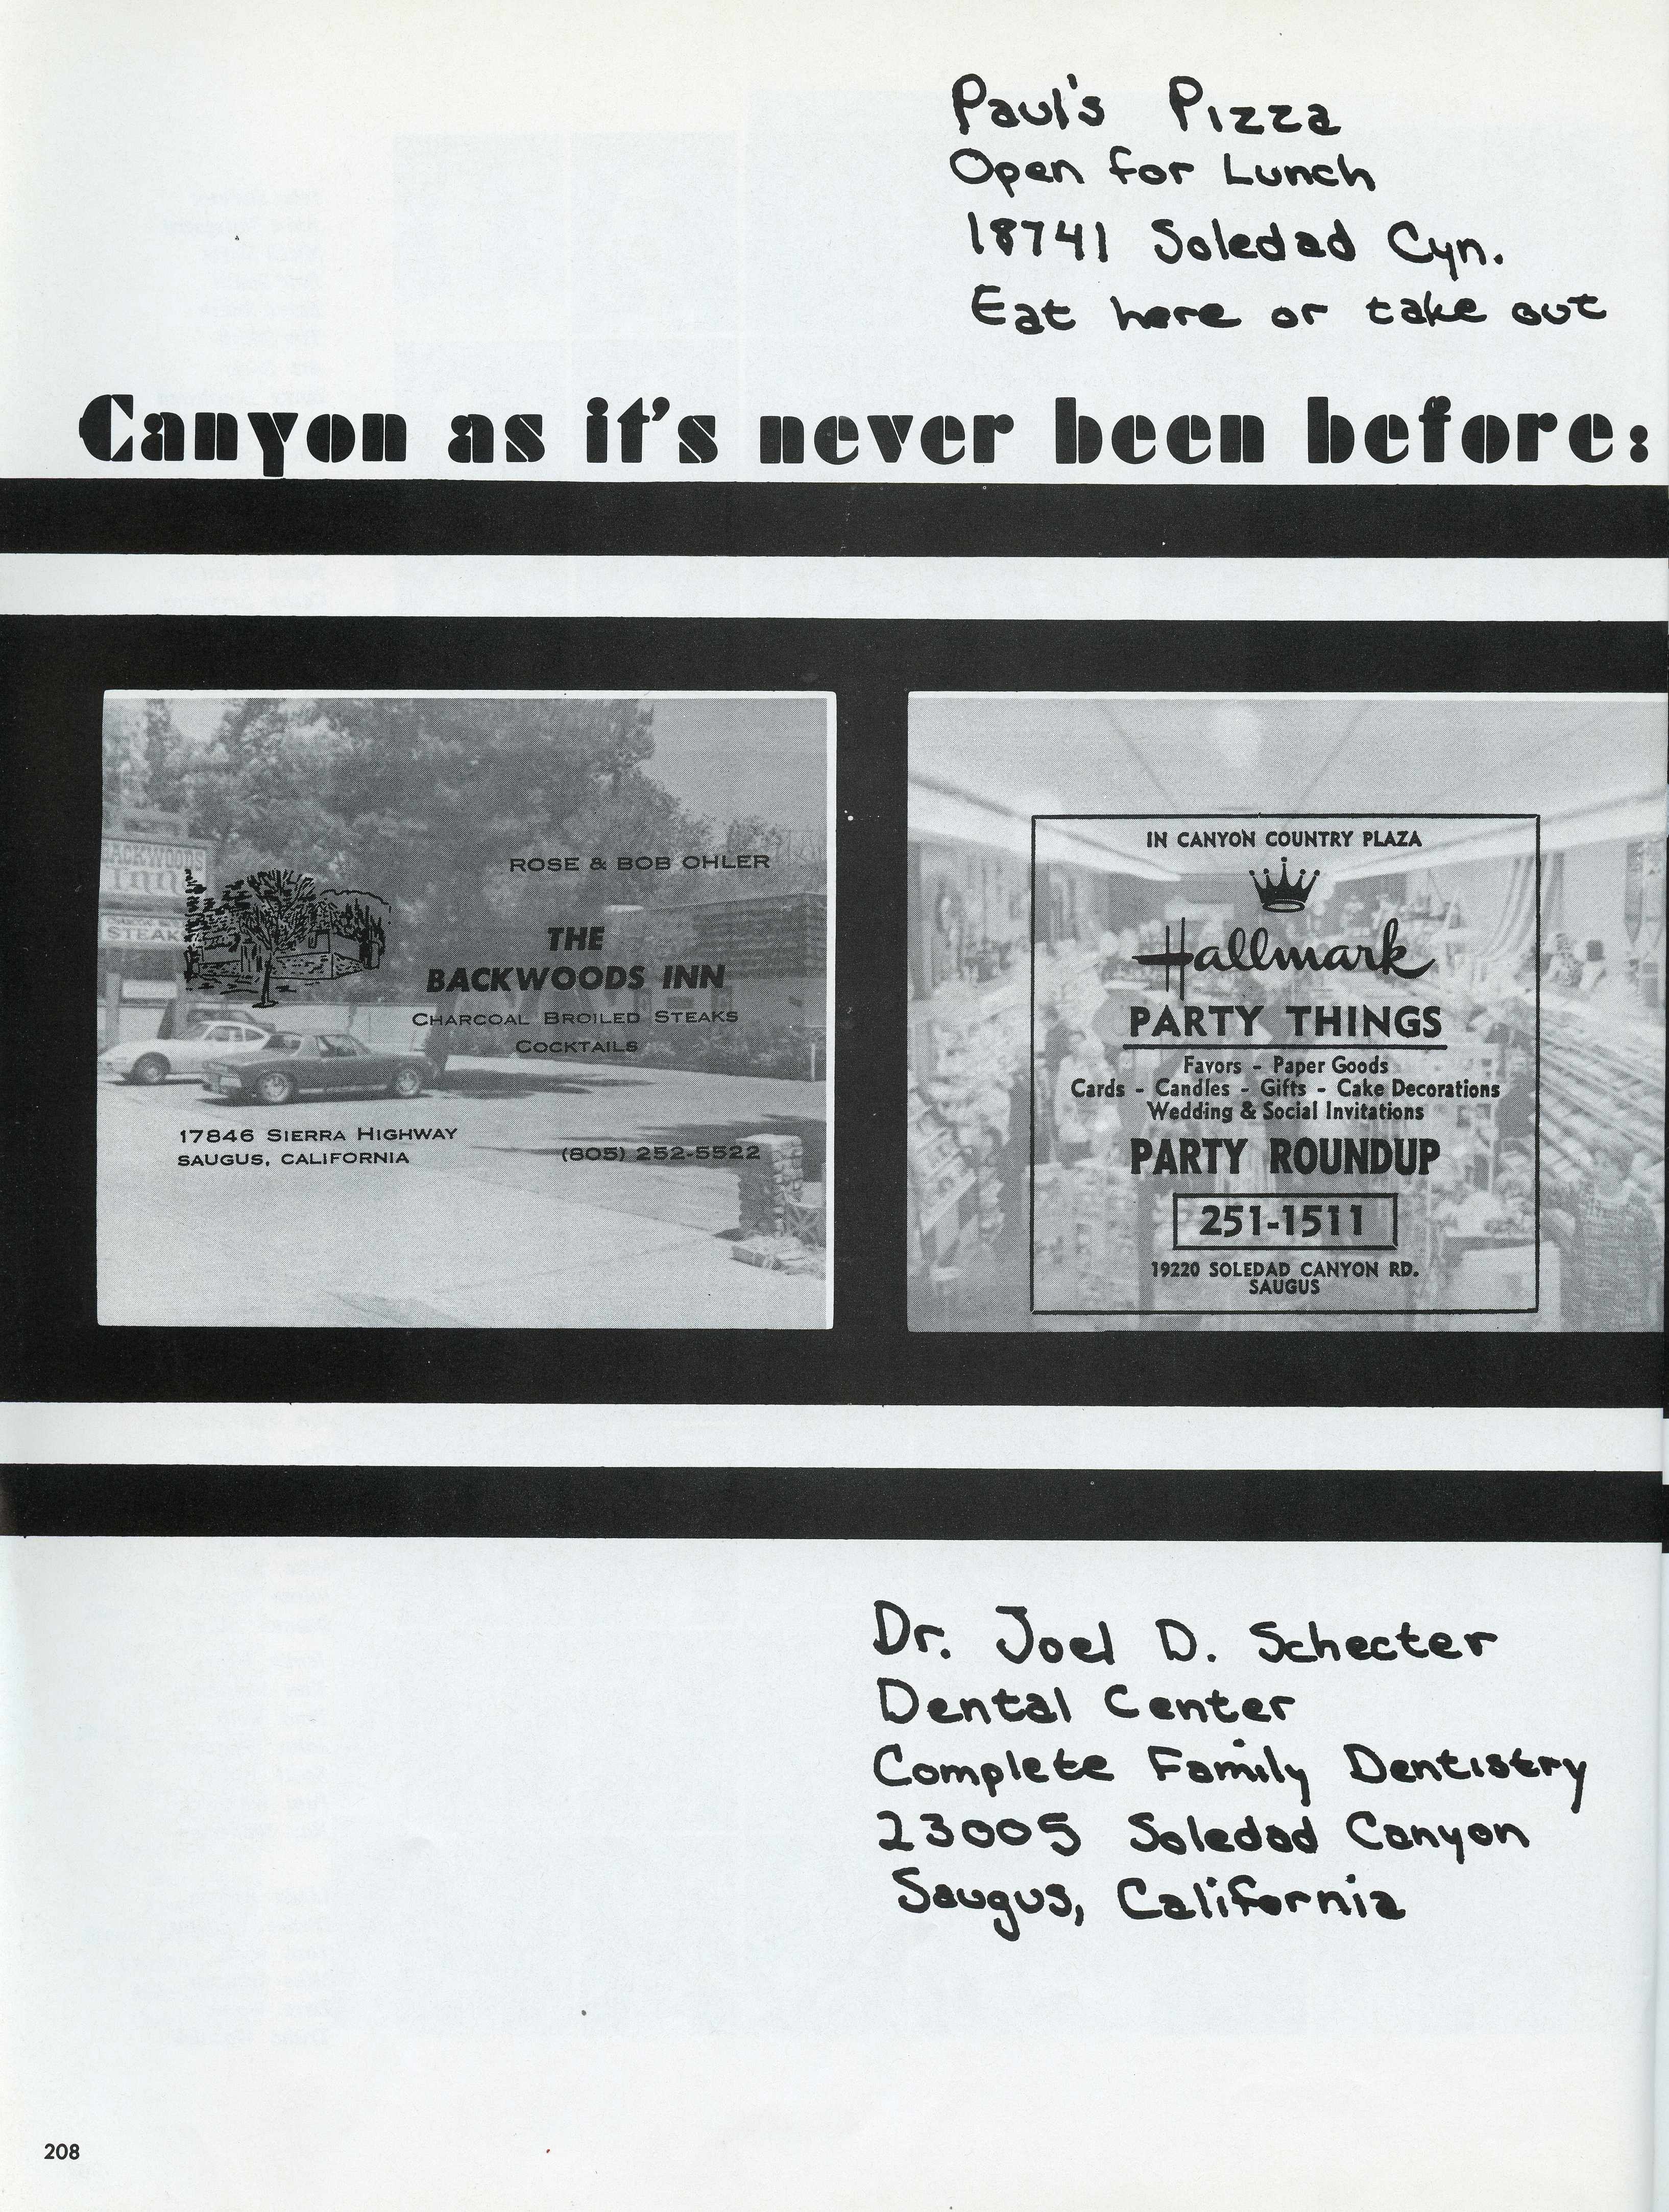 Paul's Pizza
Open for Lunch
18741 Soledad Cyn.
Eat here or take out
Canyon as it's never been before:
BACKWOODS
Inn
STEAK
ROSE & BOB OHLER
THE
BACKWOODS INN
CHARCOAL BROILED STEAKS
COCKTAILS
17846 SIERRA HIGHWAY
SAUGUS, CALIFORNIA
(805) 252-5522
IN CANYON COUNTRY PLAZA
Hallmark
PARTY THINGS
Favors - Paper Goods
Cards - Candles - Gifts - Cake Decorations
Wedding & Social Invitations
PARTY ROUNDUP
251-1511
19220 SOLEDAD CANYON RD.
SAUGUS
Dr. Joel D. Schecter
Dental Center
Complete Family Dentistry
23005 Soledad Canyon
Saugus, California
208